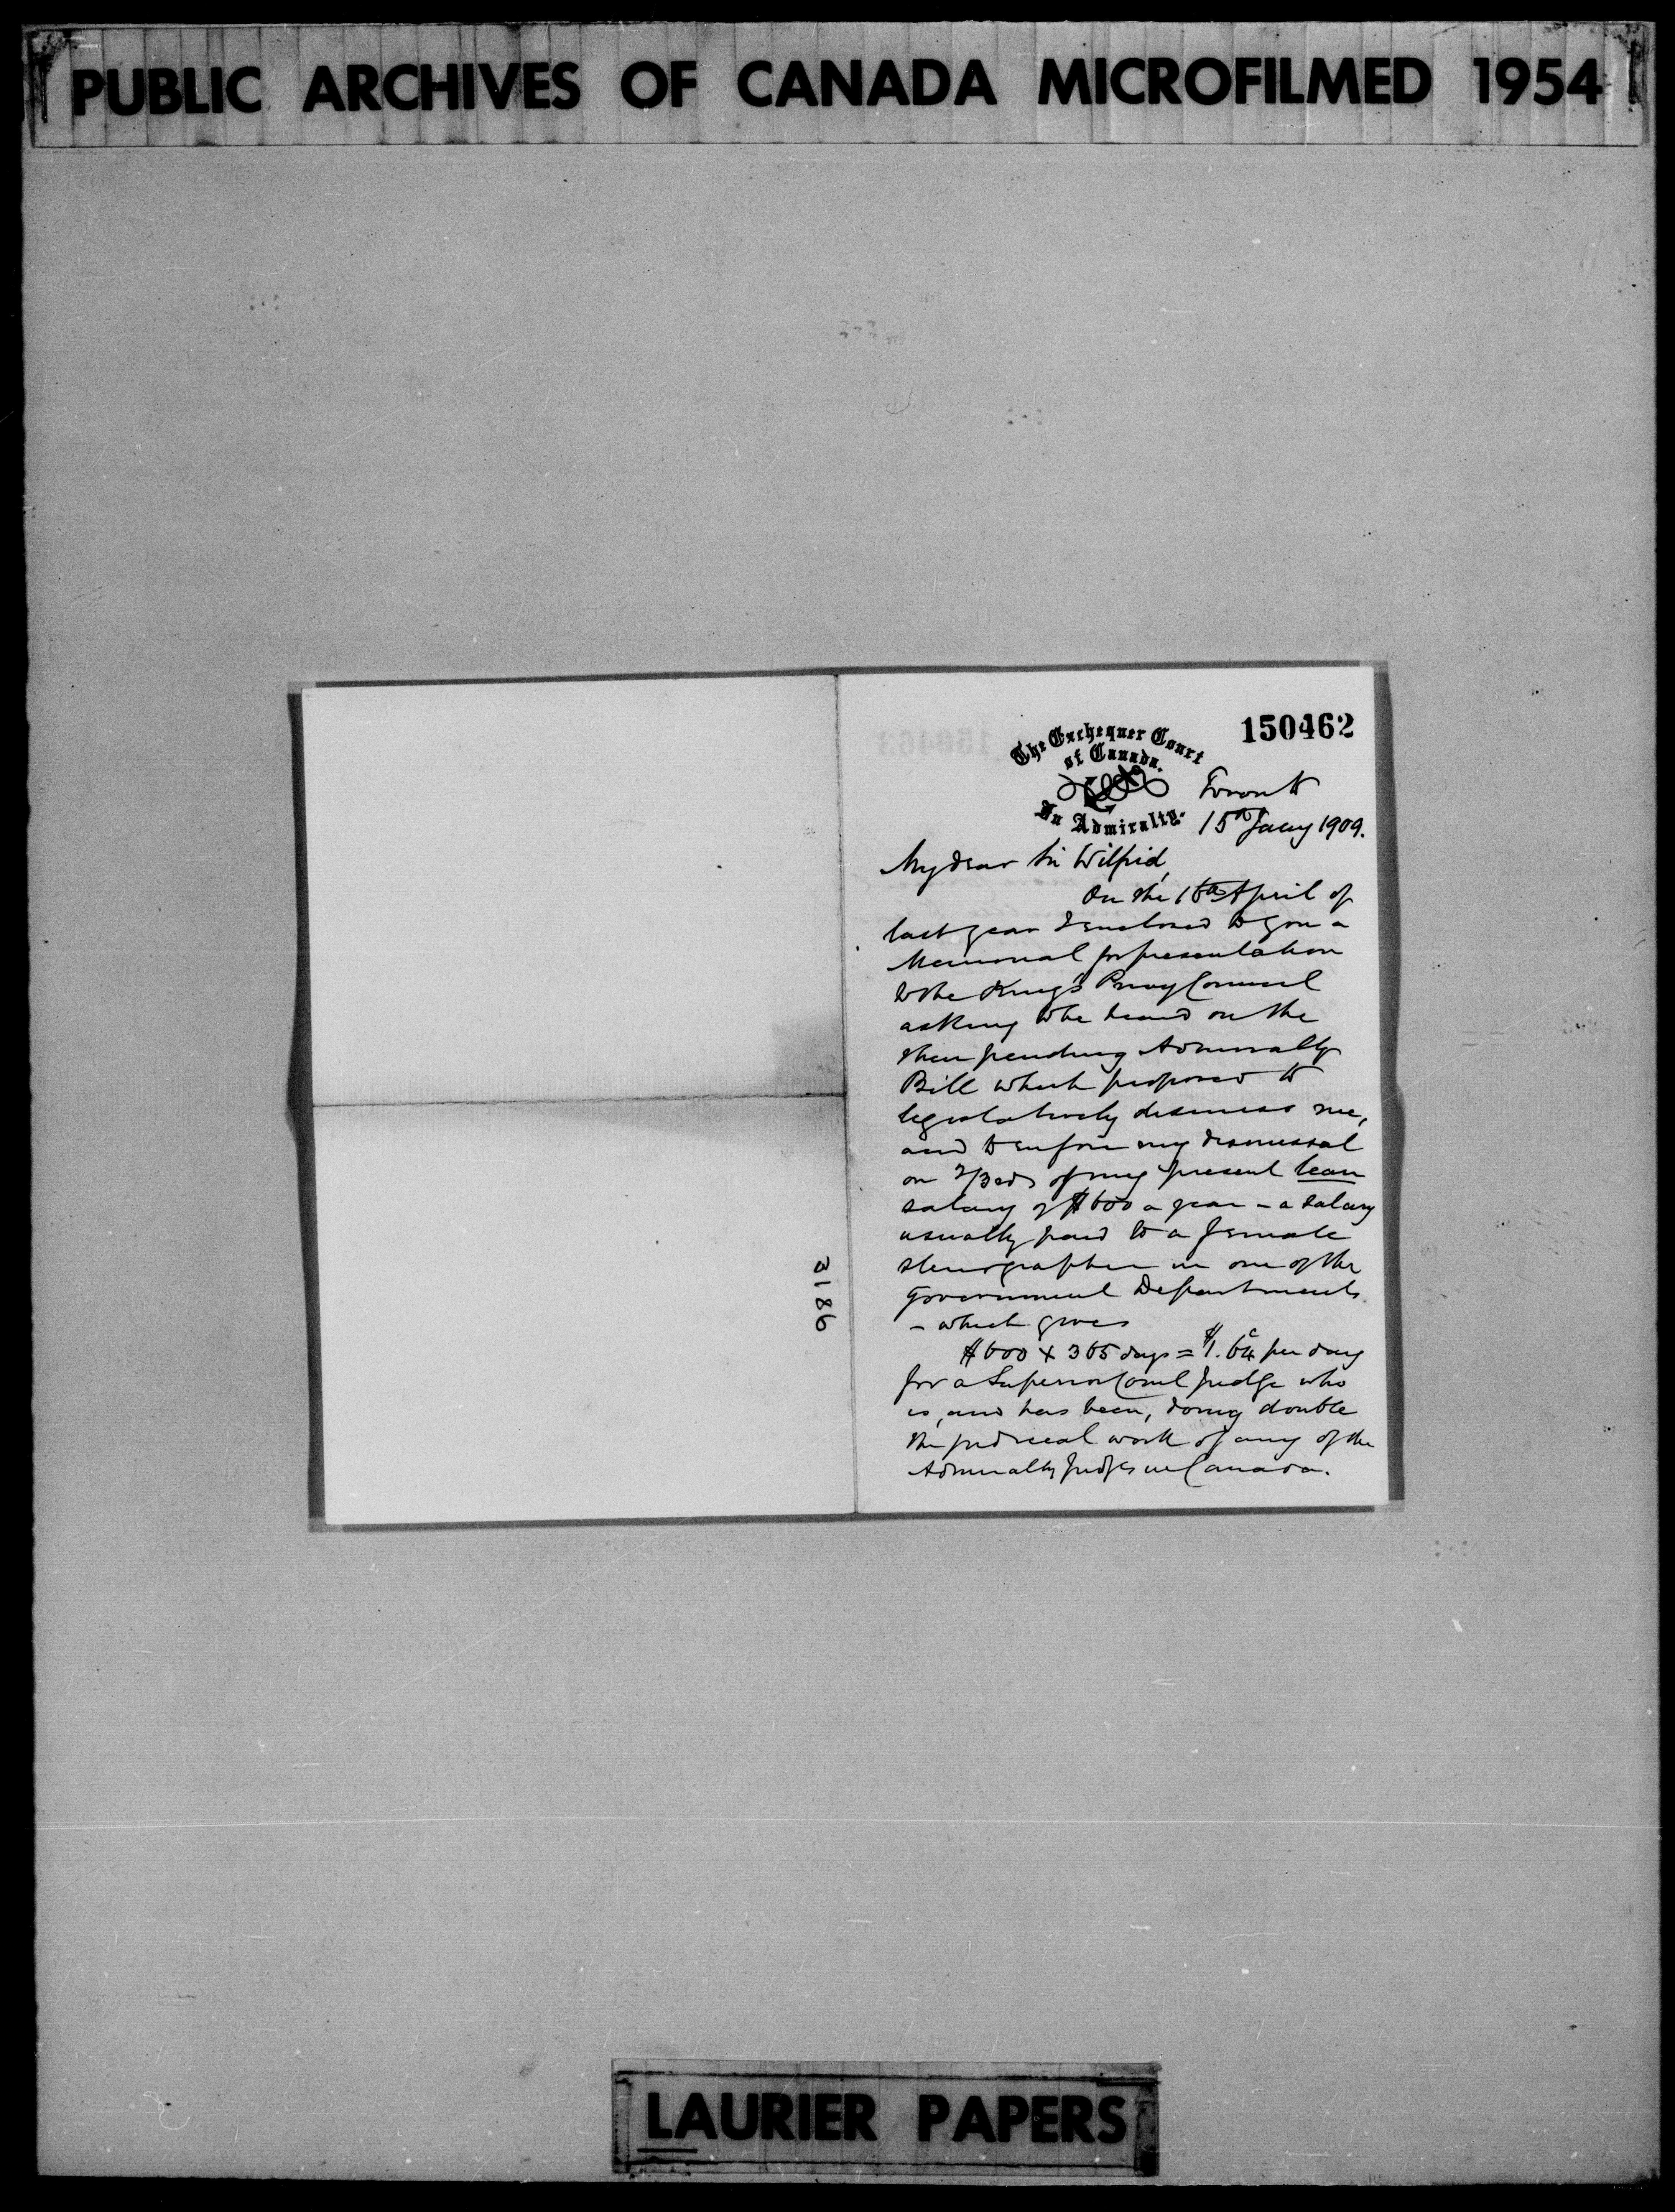 PUBLIC ARCHIVES OF CANADA MICROFILMED 1954
150462
The Exchequer Court
of Canada.
In Admiralty.
Toronto
15th Jany 1909.
My dear Sir Wilfrid,
On the 16th April of
last year I enclosed to you a
Memorial for presentation
to the King's Privy Council
asking to be heard on the
then pending Admiralty
Bill which proposed to
legislatively dismiss me,
and to enforce my dismissal
on 2/3rds of my present lean
salary of $600 a year - a salary
usually paid to a female
stenographer in one of the
Government Departments
- which gives
$600 x 365 days = $1.64c per day
for a Superior Court Judge who
is, and has been, doing double
the judicial work of any of the
Admiralty Judges in Canada.
3186
LAURIER PAPERS